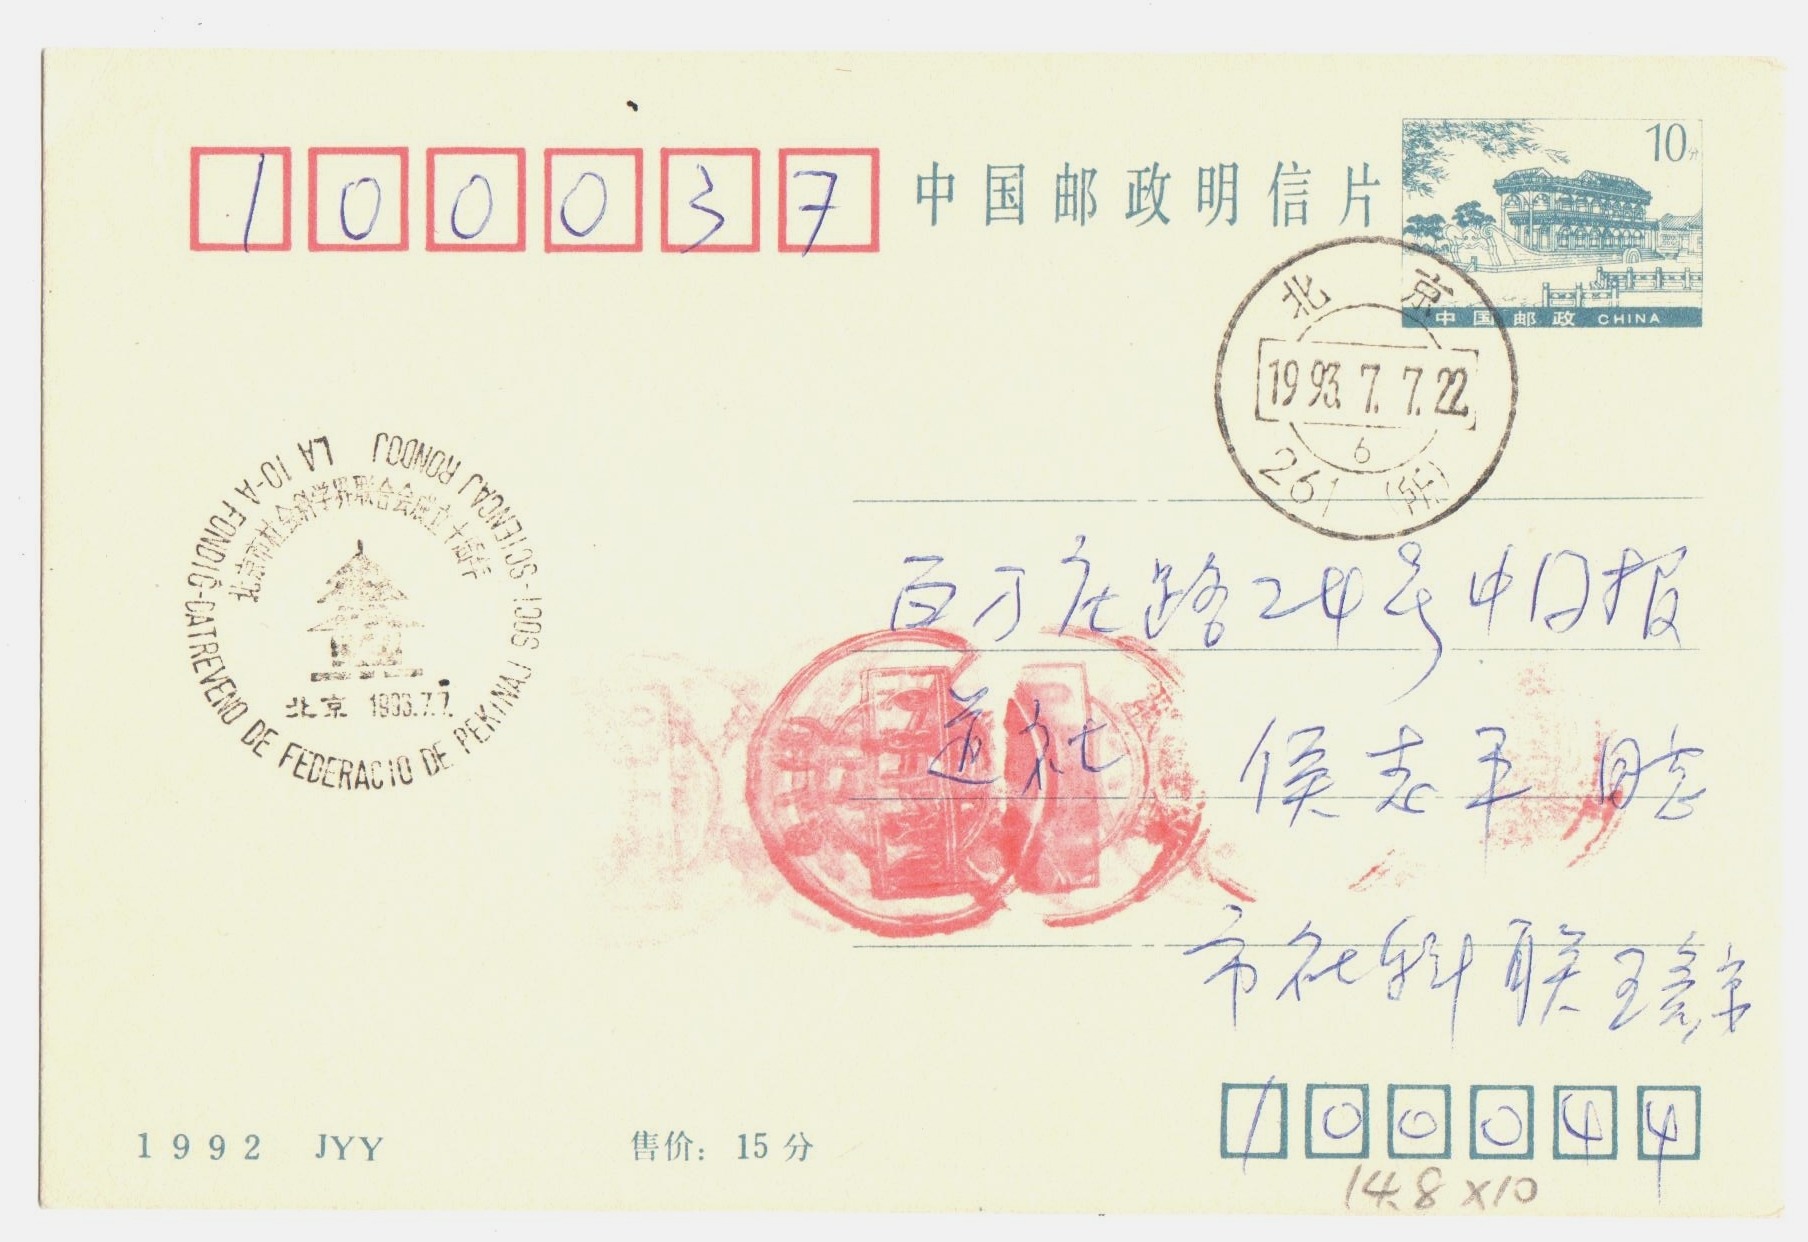 100037
中国邮政明信片
10分
中国邮政 CHINA
北京
1993.7.7.22
6
261 (所)
LA 10-A FONDIĜ-DATREVENO DE FEDERACIO DE PEKINAJ SOCI-SCIENCAJ RONDOJ
北京市社会科学界联合会成立十周年
北京 1993.7.7.
百万庄路24号中国报
道社 侯志平 同志
市社科联 王彦京
100044
1992 JYY
售价: 15 分
14.8 x10